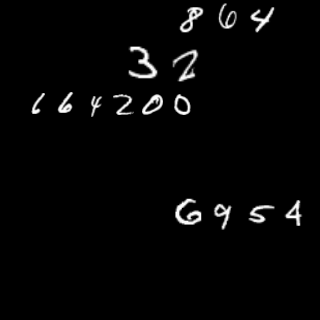 864
32
164200
6954